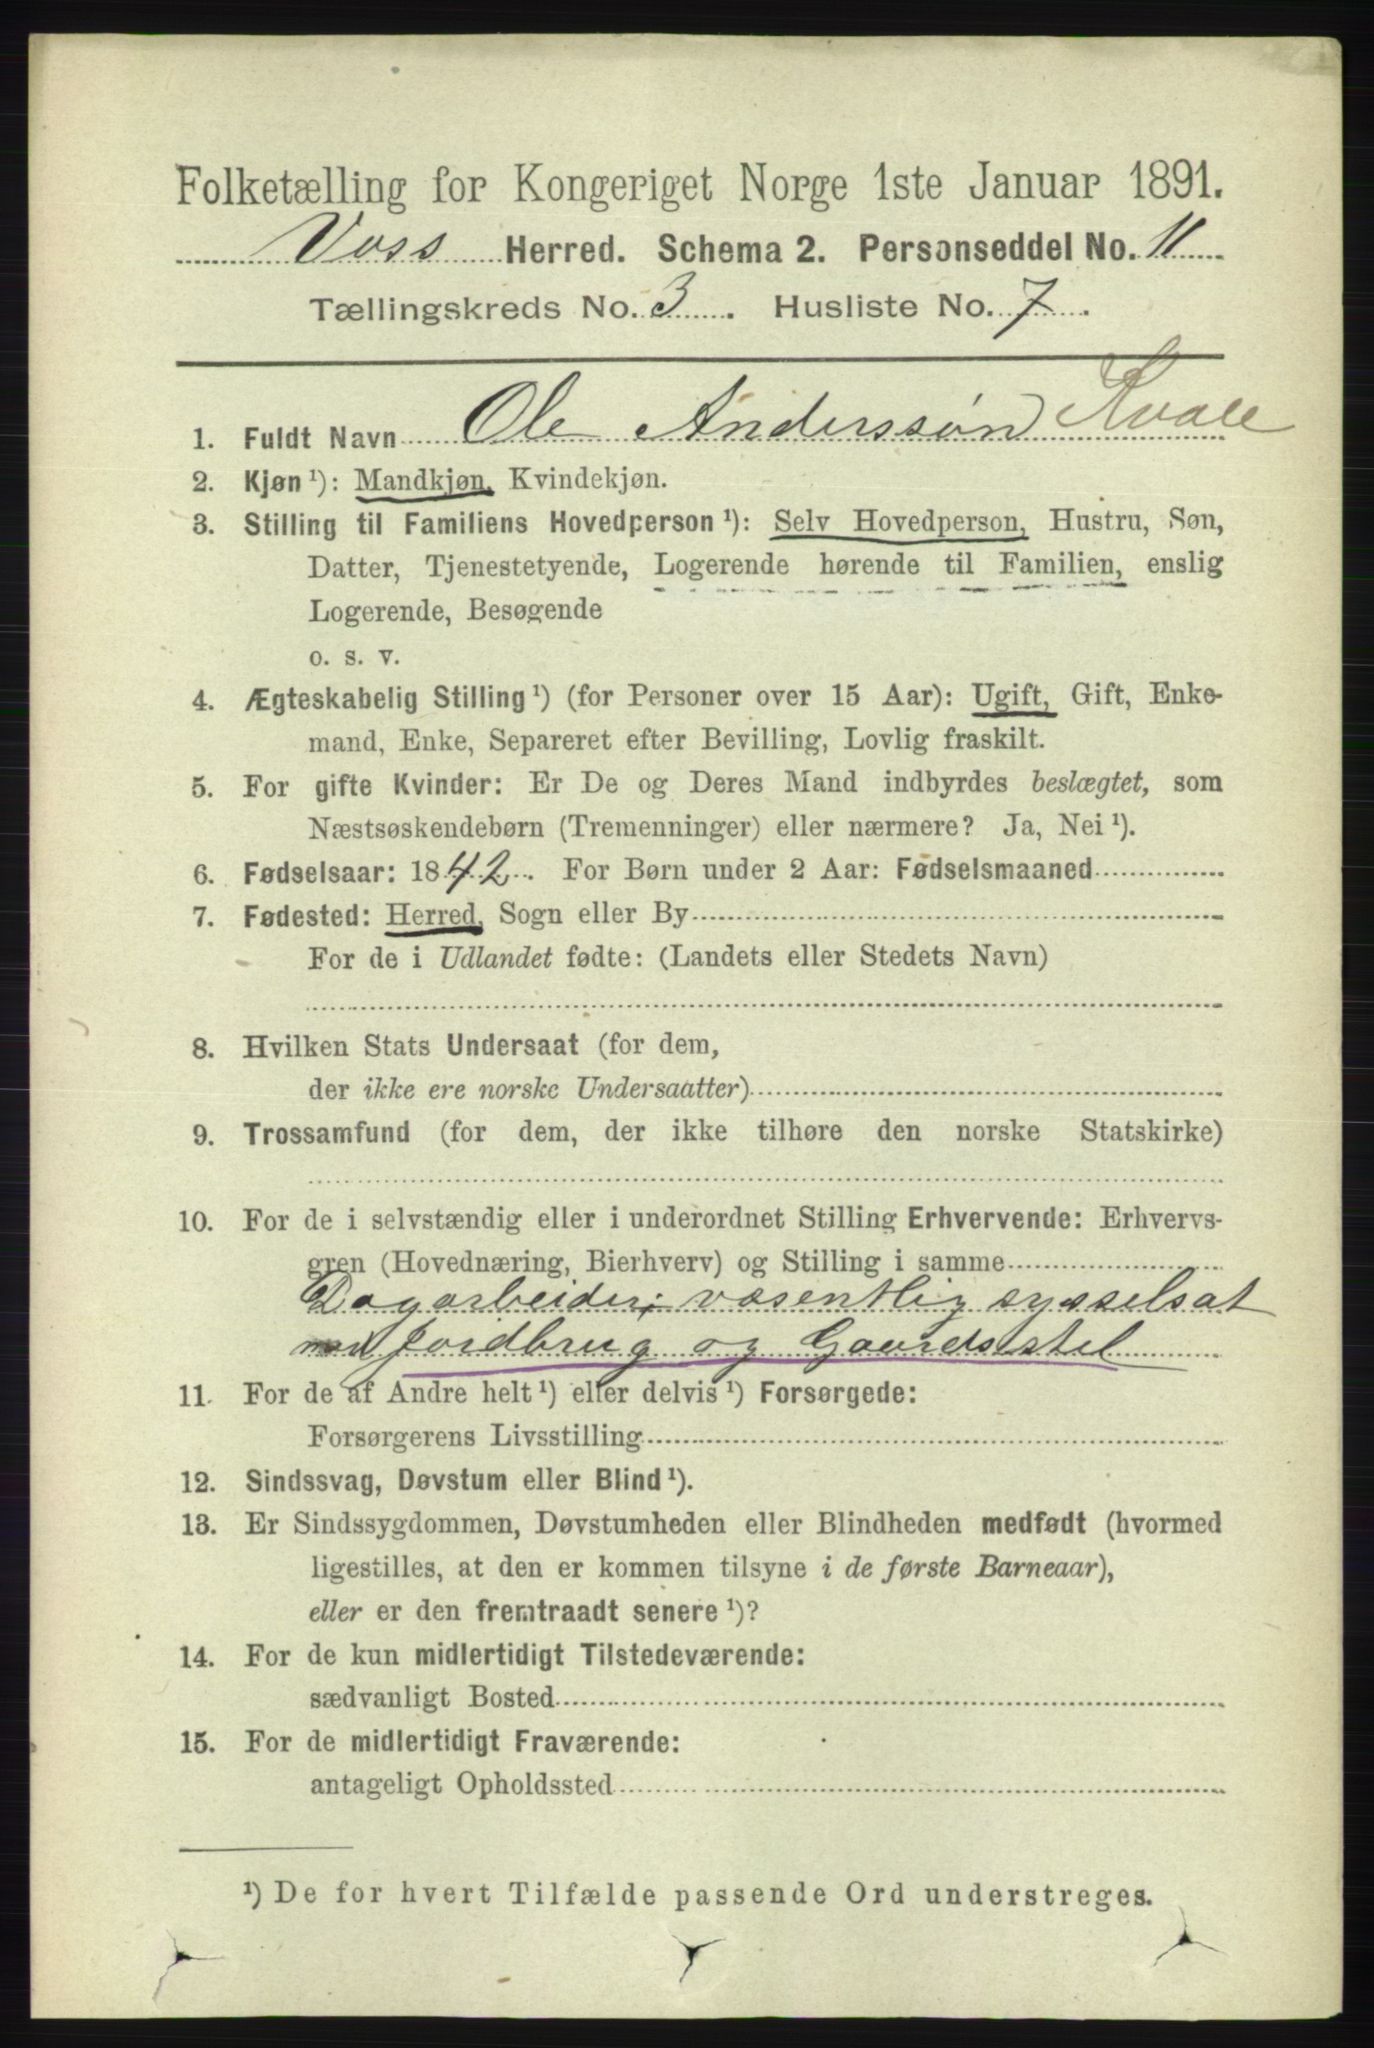 Folketælling for Kongeriget Norge 1ste Januar 1891.
Voss Herred. Schema 2. Personseddel No. 11
Tællingskreds No. 3. Husliste No. 7.
1. Fuldt Navn Ole Anderssøn Kvale
2. Kjøn¹): Mandkjøn, Kvindekjøn.
3. Stilling til Familiens Hovedperson¹): Selv Hovedperson, Hustru, Søn,
Datter, Tjenestetyende, Logerende hørende til Familien, enslig
Logerende, Besøgende
o. s. v.
4. Ægteskabelig Stilling¹) (for Personer over 15 Aar): Ugift, Gift, Enke-
mand, Enke, Separeret efter Bevilling, Lovlig fraskilt.
5. For gifte Kvinder: Er De og Deres Mand indbyrdes beslægtet, som
Næstsøskendebørn (Tremenninger) eller nærmere? Ja, Nei¹).
6. Fødselsaar: 1842. For Børn under 2 Aar: Fødselsmaaned
7. Fødested: Herred, Sogn eller By
For de i Udlandet fødte: (Landets eller Stedets Navn)
8. Hvilken Stats Undersaat (for dem,
der ikke ere norske Undersaatter)
9. Trossamfund (for dem, der ikke tilhøre den norske Statskirke)
10. For de i selvstændig eller i underordnet Stilling Erhvervende: Erhvervs-
gren (Hovednæring, Bierhverv) og Stilling i samme
Dagarbeider; væsentlig sysselsat
med Jordbrug og Gaardsstel
11. For de af Andre helt¹) eller delvis¹) Forsørgede:
Forsørgerens Livsstilling
12. Sindssvag, Døvstum eller Blind¹).
13. Er Sindssygdommen, Døvstumheden eller Blindheden medfødt (hvormed
ligestilles, at den er kommen tilsyne i de første Barneaar),
eller er den fremtraadt senere¹)?
14. For de kun midlertidigt Tilstedeværende:
sædvanligt Bosted
15. For de midlertidigt Fraværende:
antageligt Opholdssted
¹) De for hvert Tilfælde passende Ord understreges.